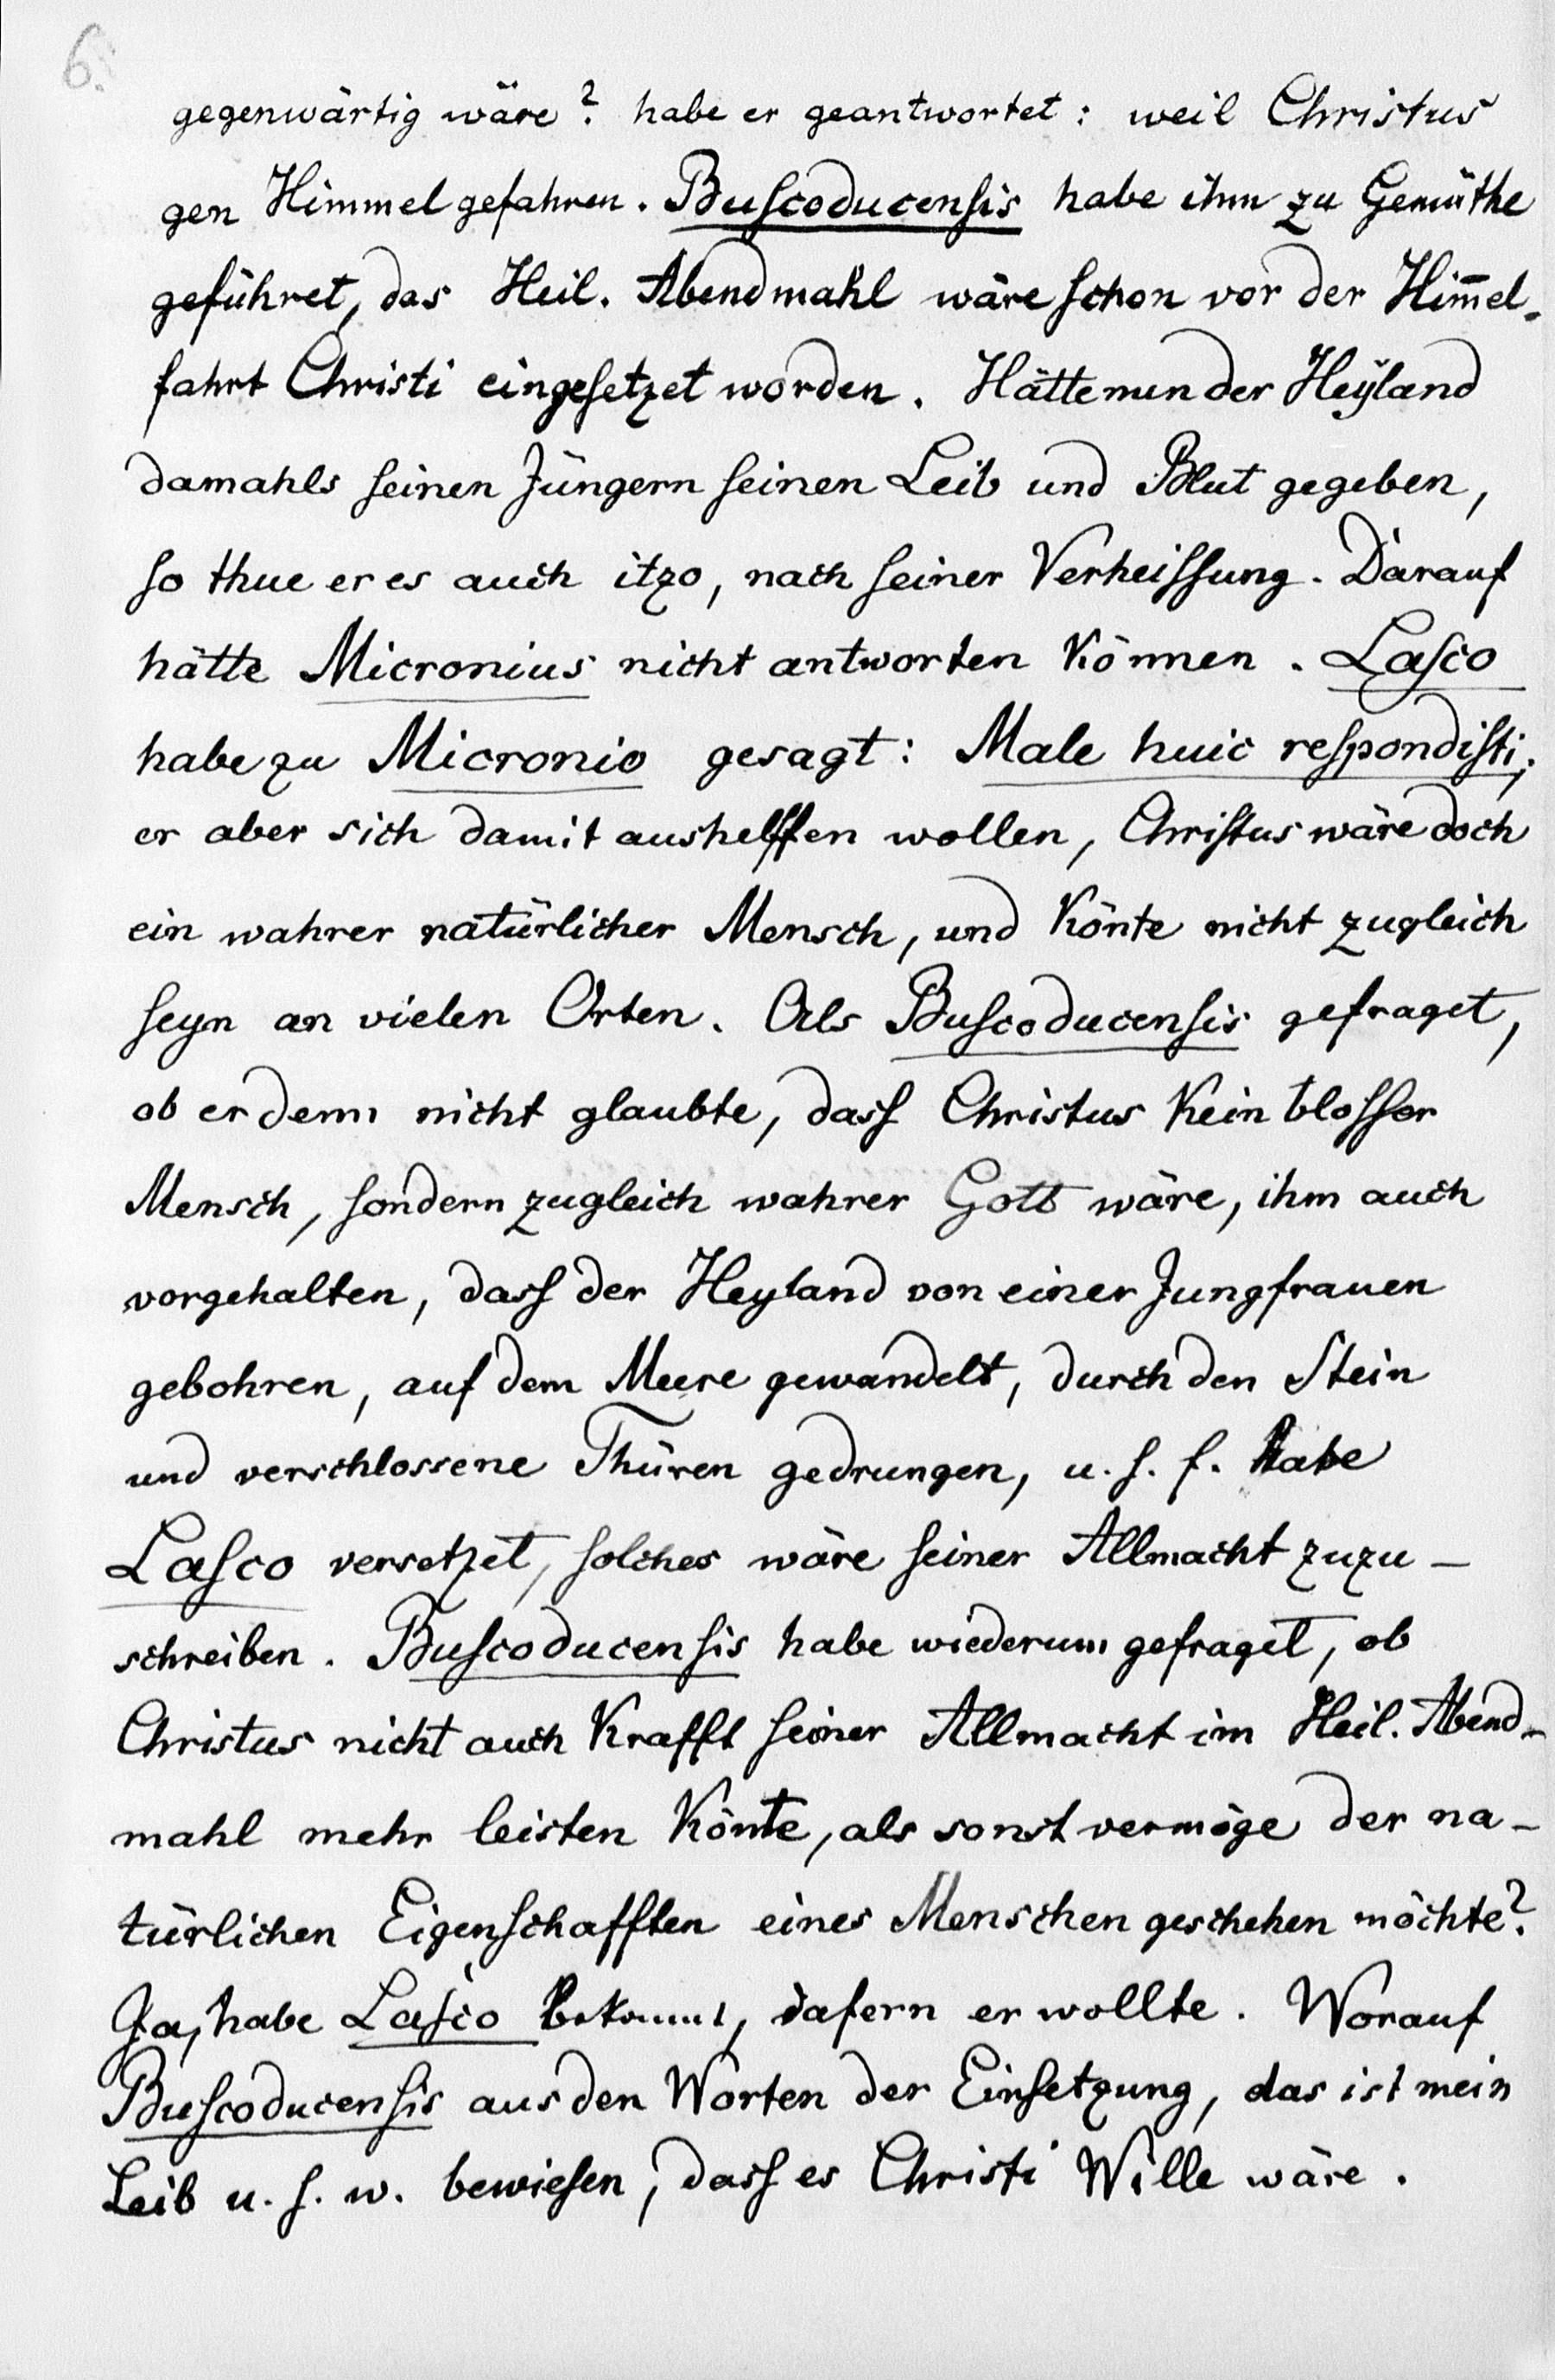 6.
gegenwärtig wäre? habe er geantwortet: weil Christus
gen Himmel gefahren. Buſcoducenſis habe ihm zu Gemüthe
geführet, das Heil. Abendmahl wäre ſchon vor der Him̅el-
fahrt Christi eingeſetzet worden. Hätte nun der Heÿland
damahls ſeinen Jüngern ſeinen Leib und Blut gegeben,
ſo thue er es auch itzo, nach ſeiner Verheiſſung. Darauf
hätte Micronius nicht antworten Können. Laſco
habe zu Micronio gesagt: Male huic reſpondiſti;
er aber sich damit aushelffen wollen, Chriſtus wäre doch
ein wahrer natürlicher Mensch, und Könte nicht zugleich
ſeyn an vielen Orten. Als Buſcoducenſis gefraget,
ob er denn nicht glaubte, dasſ Christus Kein bloſſer
Mensch, ſondern zugleich wahrer Gott wäre, ihm auch
vorgehalten, dasſ der Heyland von einer Jungfrauen
gebohren, auf dem Meere gewandelt, durch den Stein
und verschlossene Thüren gedrungen, u. ſ. f. Habe
Laſco versetzet, ſolches wäre ſeiner Allmacht zuzu-
schreiben. Buſcoducenſis habe wiederum gefraget, ob
Christus nicht auch Krafft ſeiner Allmacht im Heil. Abend-
mahl mehr leisten Könte, als sonst vermöge der na-
türlichen Eigenſchafften eines Menschen geschehen möchte?
Ja, habe Laſco bekannt, dafern er wollte. Worauf
Buſcoducenſis aus den Worten der Einſetzung, das ist mein
Leib u. ſ. w. bewieſen, dasſ es Christi Wille wäre.